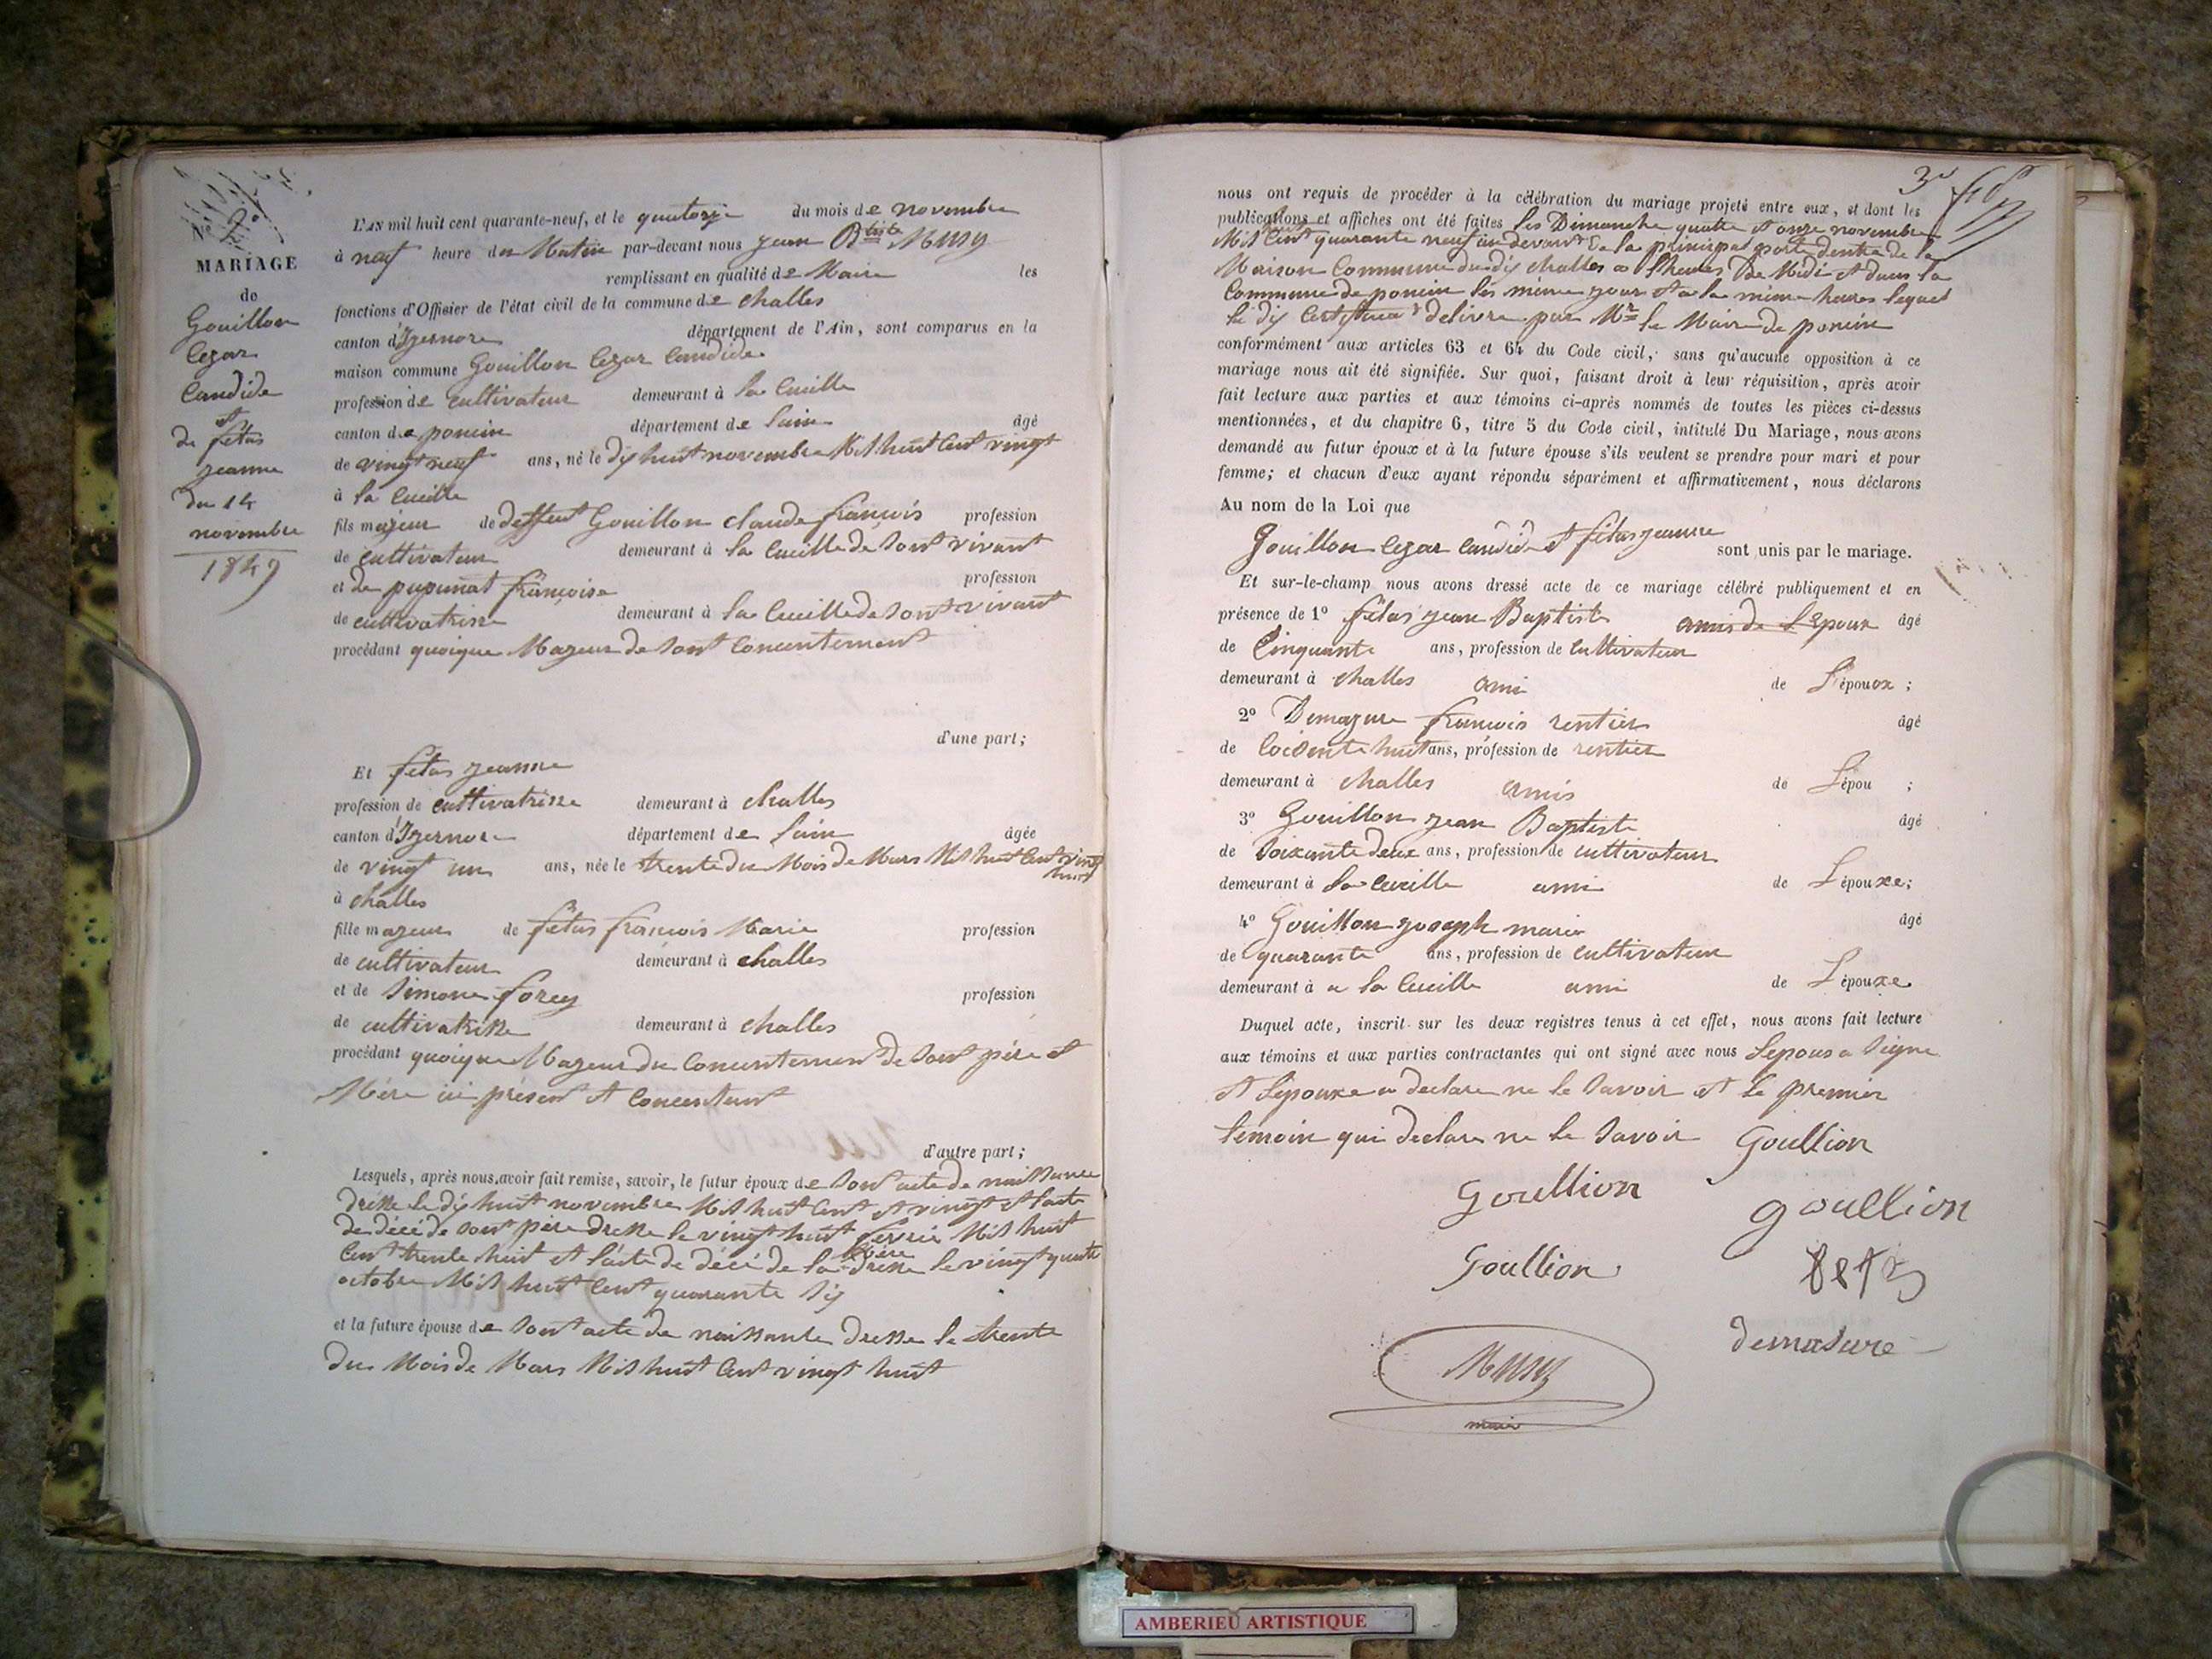 N° 2°
MARIAGE
de
Gouillon
Cezar
Candide
et
de fétas
jeanne
du 14
novembre
1849
L'AN mil huit cent quarante-neuf, et le quatorze du mois de novembre
à neuf heure du Matin par-devant nous jean Btiste Musy
remplissant en qualité de Maire les
fonctions d'Officier de l'état civil de la commune de challes
canton d'Izernore département de l'Ain, sont comparus en la
maison commune Gouillon Cezar Candide
profession de cultivateur demeurant à la Cueille
canton de poncin département de lain âgé
de vingt neuf ans, né le dix huit novembre Mil huit Cent vingt
à la Cueille
fils majeur de deffunt Gouillon claude françois profession
de cultivateur demeurant à la Cueille de sont vivant
et de pupunat françoise profession
de cultivatrisse demeurant à la Cueille de sont vivant
procédant quoique Mageur de sont Concentement
d'une part;
Et fétas jeanne
profession de cultivatrisse demeurant à challes
canton d'Izernore département de lain âgée
de vingt un ans, née le trente du Mois de Mars Mil huit Cent vingt
huit
à challes
fille mageur de fétas françois Marie profession
de cultivateur demeurant à challes
et de Simone forey profession
de cultivatrisse demeurant à challes
procédant quoique Mageur du Concentement de sont père et
Mère ici présent et Concentent
d'autre part;
Lesquels, après nous avoir fait remise, savoir, le futur époux de sont acte de naissance
dresse le dix huit novembre Mil huit Cent et vingt et lacte
de décé de sont père dresse le vingt huit fevrié Mil huit
Cent trente huit et lacte de décé de la Mère dresse le vingt quatre
octobre Mil huit Cent quarante Six
et la future épouse de sont acte de naissante dresse le trente
du Mois de Mars Mil huit Cent vingt huit
nous ont requis de procéder à la célébration du mariage projeté entre eux, et dont les
publications et affiches ont été faites les Dimanche quatre et onze novembre
Mil Cent quarante neuf au devant de la principal porte dentre de la
Maison Commune dudis challes a lheures de Midi et dans la
Commune de poncin les meme jour et a la même heures lequel
le dis Certificat delivre par Mr le Maire de poncin
conformément aux articles 63 et 64 du Code civil, sans qu'aucune opposition à ce
mariage nous ait été signifiée. Sur quoi, faisant droit à leur réquisition, après avoir
fait lecture aux parties et aux témoins ci-après nommés de toutes les pièces ci-dessus
mentionnées, et du chapitre 6, titre 5 du Code civil, intitulé Du Mariage, nous avons
demandé au futur époux et à la future épouse s'ils veulent se prendre pour mari et pour
femme; et chacun d'eux ayant répondu séparément et affirmativement, nous déclarons
Au nom de la Loi que
Gouillon Cezar Candide et fétas jeanne sont unis par le mariage.
Et sur-le-champ nous avons dressé acte de ce mariage célébré publiquement et en
présence de 1° fétas jean Baptiste amis de L'Epoux âgé
de Cinquante ans, profession de Cultivateur
demeurant à challes ami de L'époux ;
2° Demazure françois rentier âgé
de Soisente huit ans, profession de rentier
demeurant à challes amis de L'épou ;
3° Gouillon jean Baptiste âgé
de Soixante deux ans, profession de cultivateur
demeurant à la Cueille ami de L'épouxe;
4° Gouillon joseph marie âgé
de quarante ans, profession de cultivateur
demeurant à a la Cueille ami de L'épouxe
Duquel acte, inscrit sur les deux registres tenus à cet effet, nous avons fait lecture
aux témoins et aux parties contractantes qui ont signé avec nous Lepous a Signe
et Lépouxe a declare ne le savoir et le premier
témoin qui declare ne le savoir Goullion
Goullion goullion
Goullion
demasure
Musy
maire
AMBERIEU ARTISTIQUE